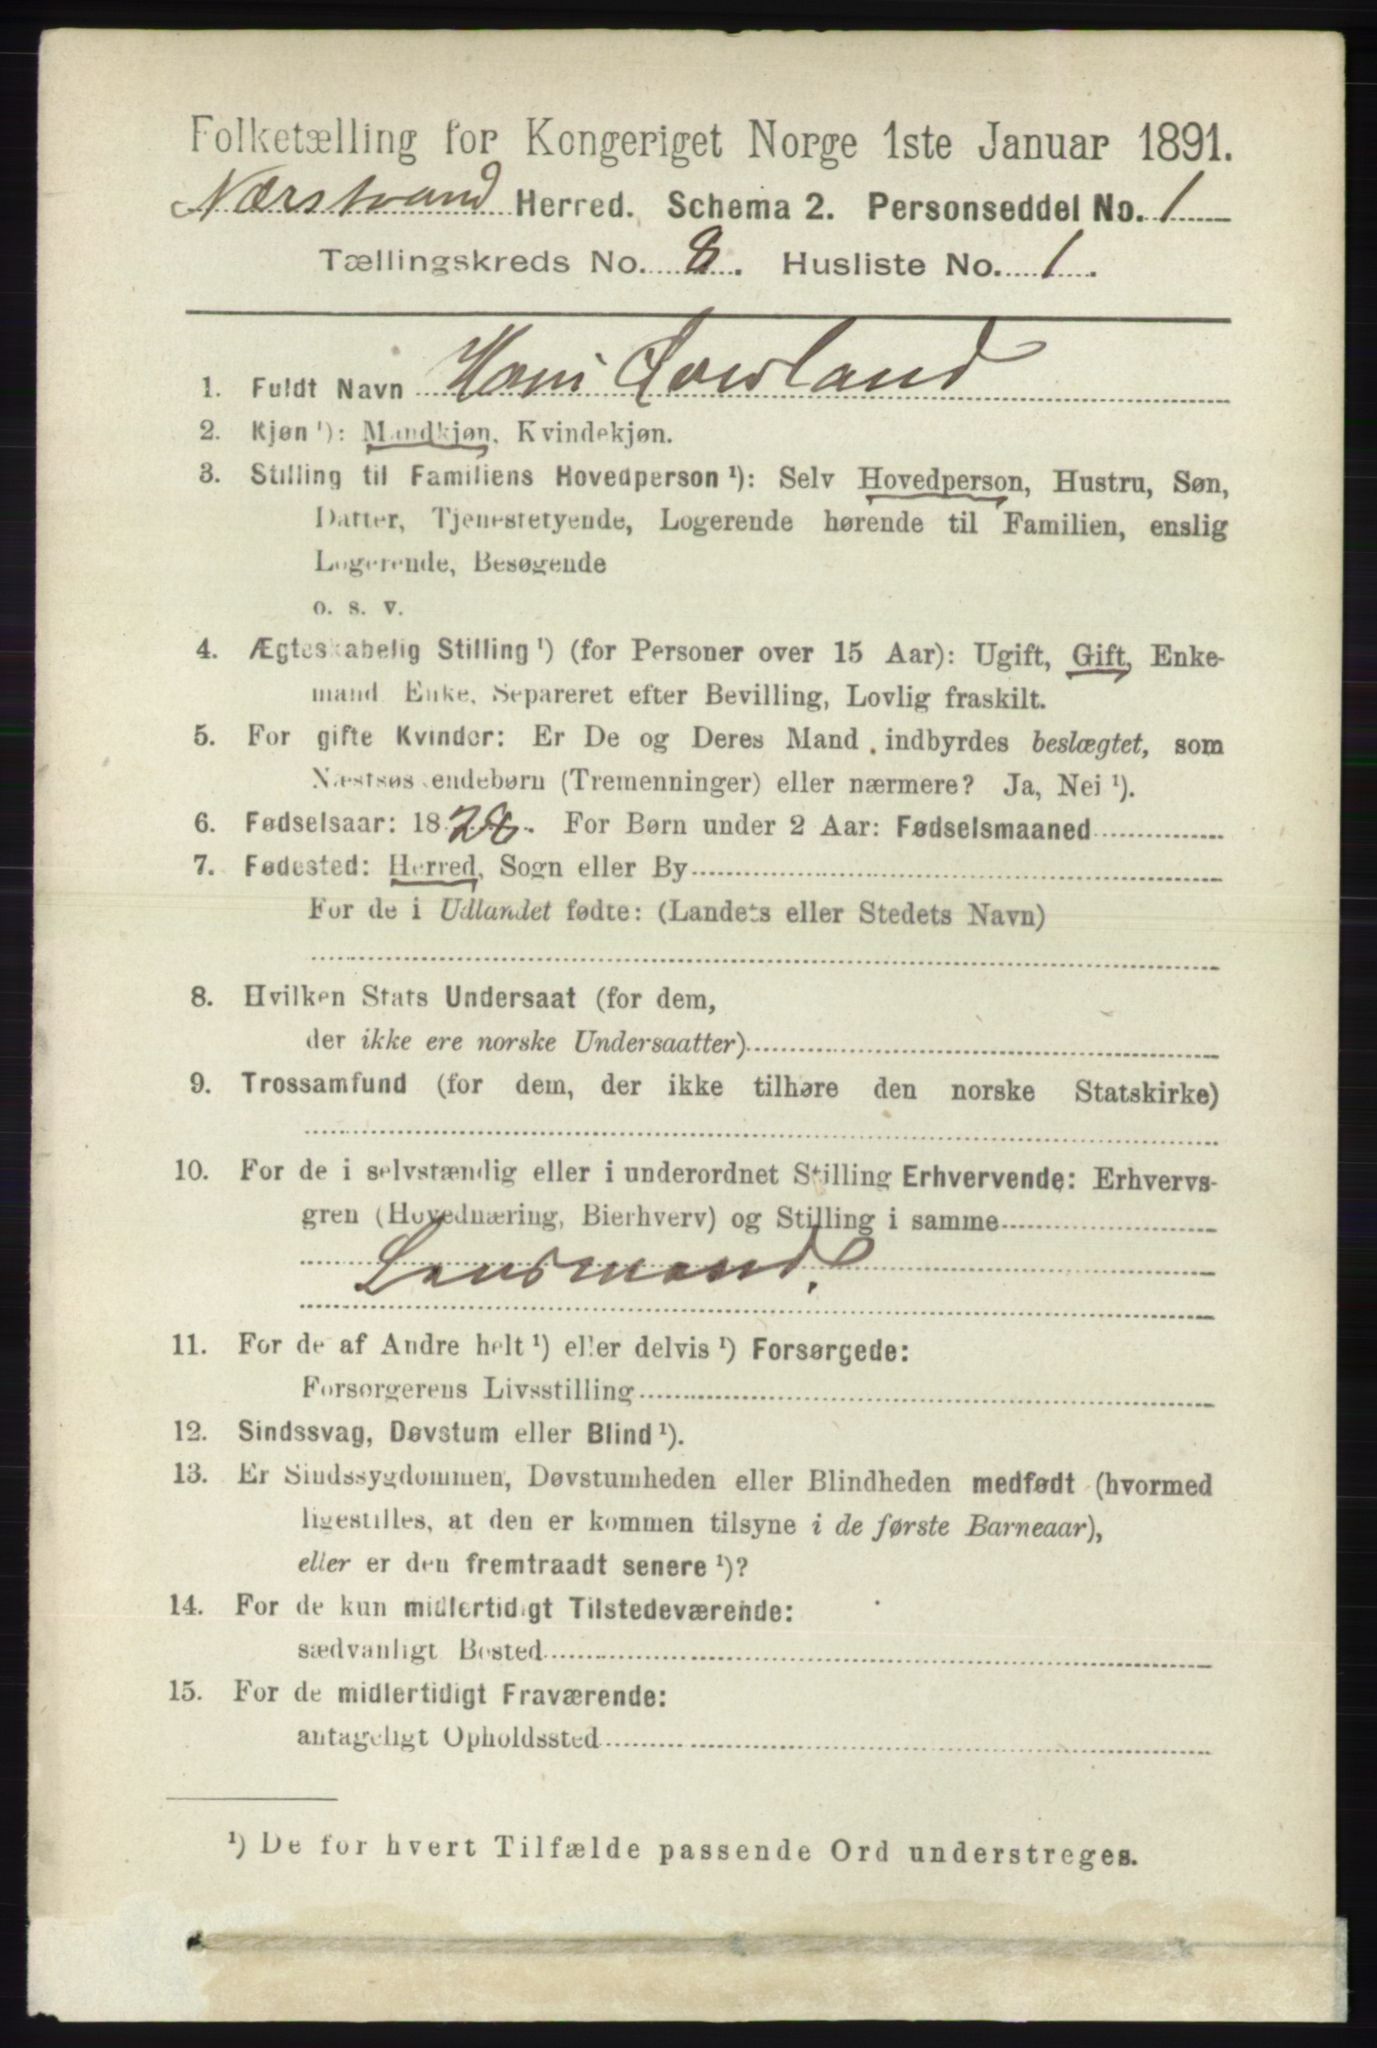 Folketælling for Kongeriget Norge 1ste Januar 1891.
Nærstrand Herred. Schema 2. Personseddel No. 1
Tællingskreds No. 8. Husliste No. 1.
1. Fuldt Navn Hans
2. Kjøn ¹): Mandkjøn, Kvindekjøn.
3. Stilling til Familiens Hovedperson ¹): Selv Hovedperson, Hustru, Søn,
Datter, Tjenestetyende, Logerende hørende til Familien, enslig
Logerende, Besøgende
o. s. v.
4. Ægteskabelig Stilling ¹) (for Personer over 15 Aar): Ugift, Gift, Enke-
mand, Enke, Separeret efter Bevilling, Lovlig fraskilt.
5. For gifte Kvinder: Er De og Deres Mand indbyrdes beslægtet, som
Næstsøskendebørn (Tremenninger) eller nærmere? Ja, Nei ¹).
6. Fødselsaar: 1828. For Børn under 2 Aar: Fødselsmaaned
7. Fødested: Herred, Sogn eller By
For de i Udlandet fødte: (Landets eller Stedets Navn)
8. Hvilken Stats Undersaat (for dem,
der ikke ere norske Undersaatter)
9. Trossamfund (for dem, der ikke tilhøre den norske Statskirke)
10. For de i selvstændig eller i underordnet Stilling Erhvervende: Erhvervs-
gren (Hovednæring, Bierhverv) og Stilling i samme
Lensmand.
11. For de af Andre helt ¹) eller delvis ¹) Forsørgede:
Forsørgerens Livsstilling
12. Sindssvag, Døvstum eller Blind ¹).
13. Er Sindssygdommen, Døvstumheden eller Blindheden medfødt (hvormed
ligestilles, at den er kommen tilsyne i de første Barneaar),
eller er den fremtraadt senere ¹)?
14. For de kun midlertidigt Tilstedeværende:
sædvanligt Bosted
15. For de midlertidigt Fraværende:
antageligt Opholdssted
¹) De for hvert Tilfælde passende Ord understreges.